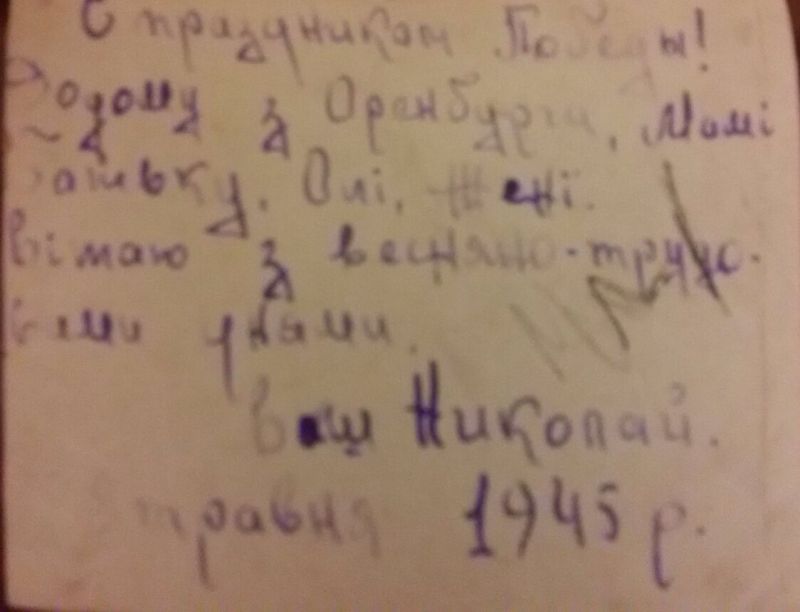 С праздником Победы!
Додому з Оренбурга, Мамі
Батьку, Олі, Жені.
Вітаю з весняно-трудо-
вими днями.
Ваш Николай.
травня 1945 р.